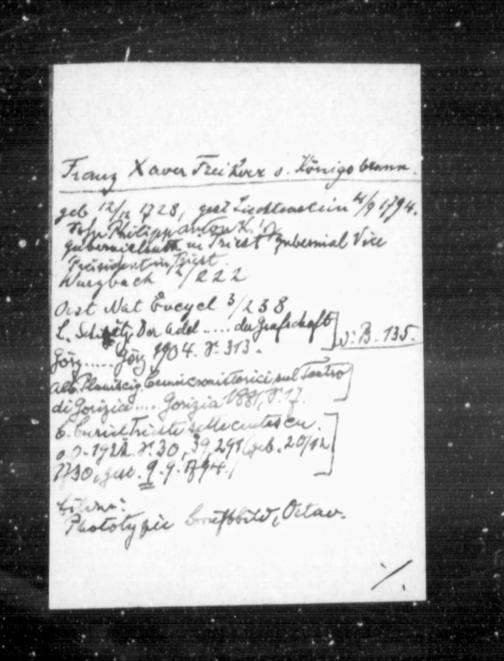 Franz Xaver Freiherr v. Königsbrunn.
geb 12/12 1728, gest Liechtenstein 4/9 1794.
Philipp Anton
in Triest Gubernial Vice
Präsident in Triest.
Wurzbach 12/222
Oest Nat Encycl 3/238
L. Schiviz, Der Adel .... der Grafschaft
Görz..... Görz, 1904. S. 313. S. B. 135.
Alb. Planiscig, Cenni storici sul Teatro
di Gorizia .... Gorizia 1881, S. 17.
Trieste settecentesca.
o. O. 1922. S. 30, 39, 291 (geb. 20/12
1730, gest. 9. 9. 1794.)
Bildnis:
Phototypie Brustbild, Octav.
./.